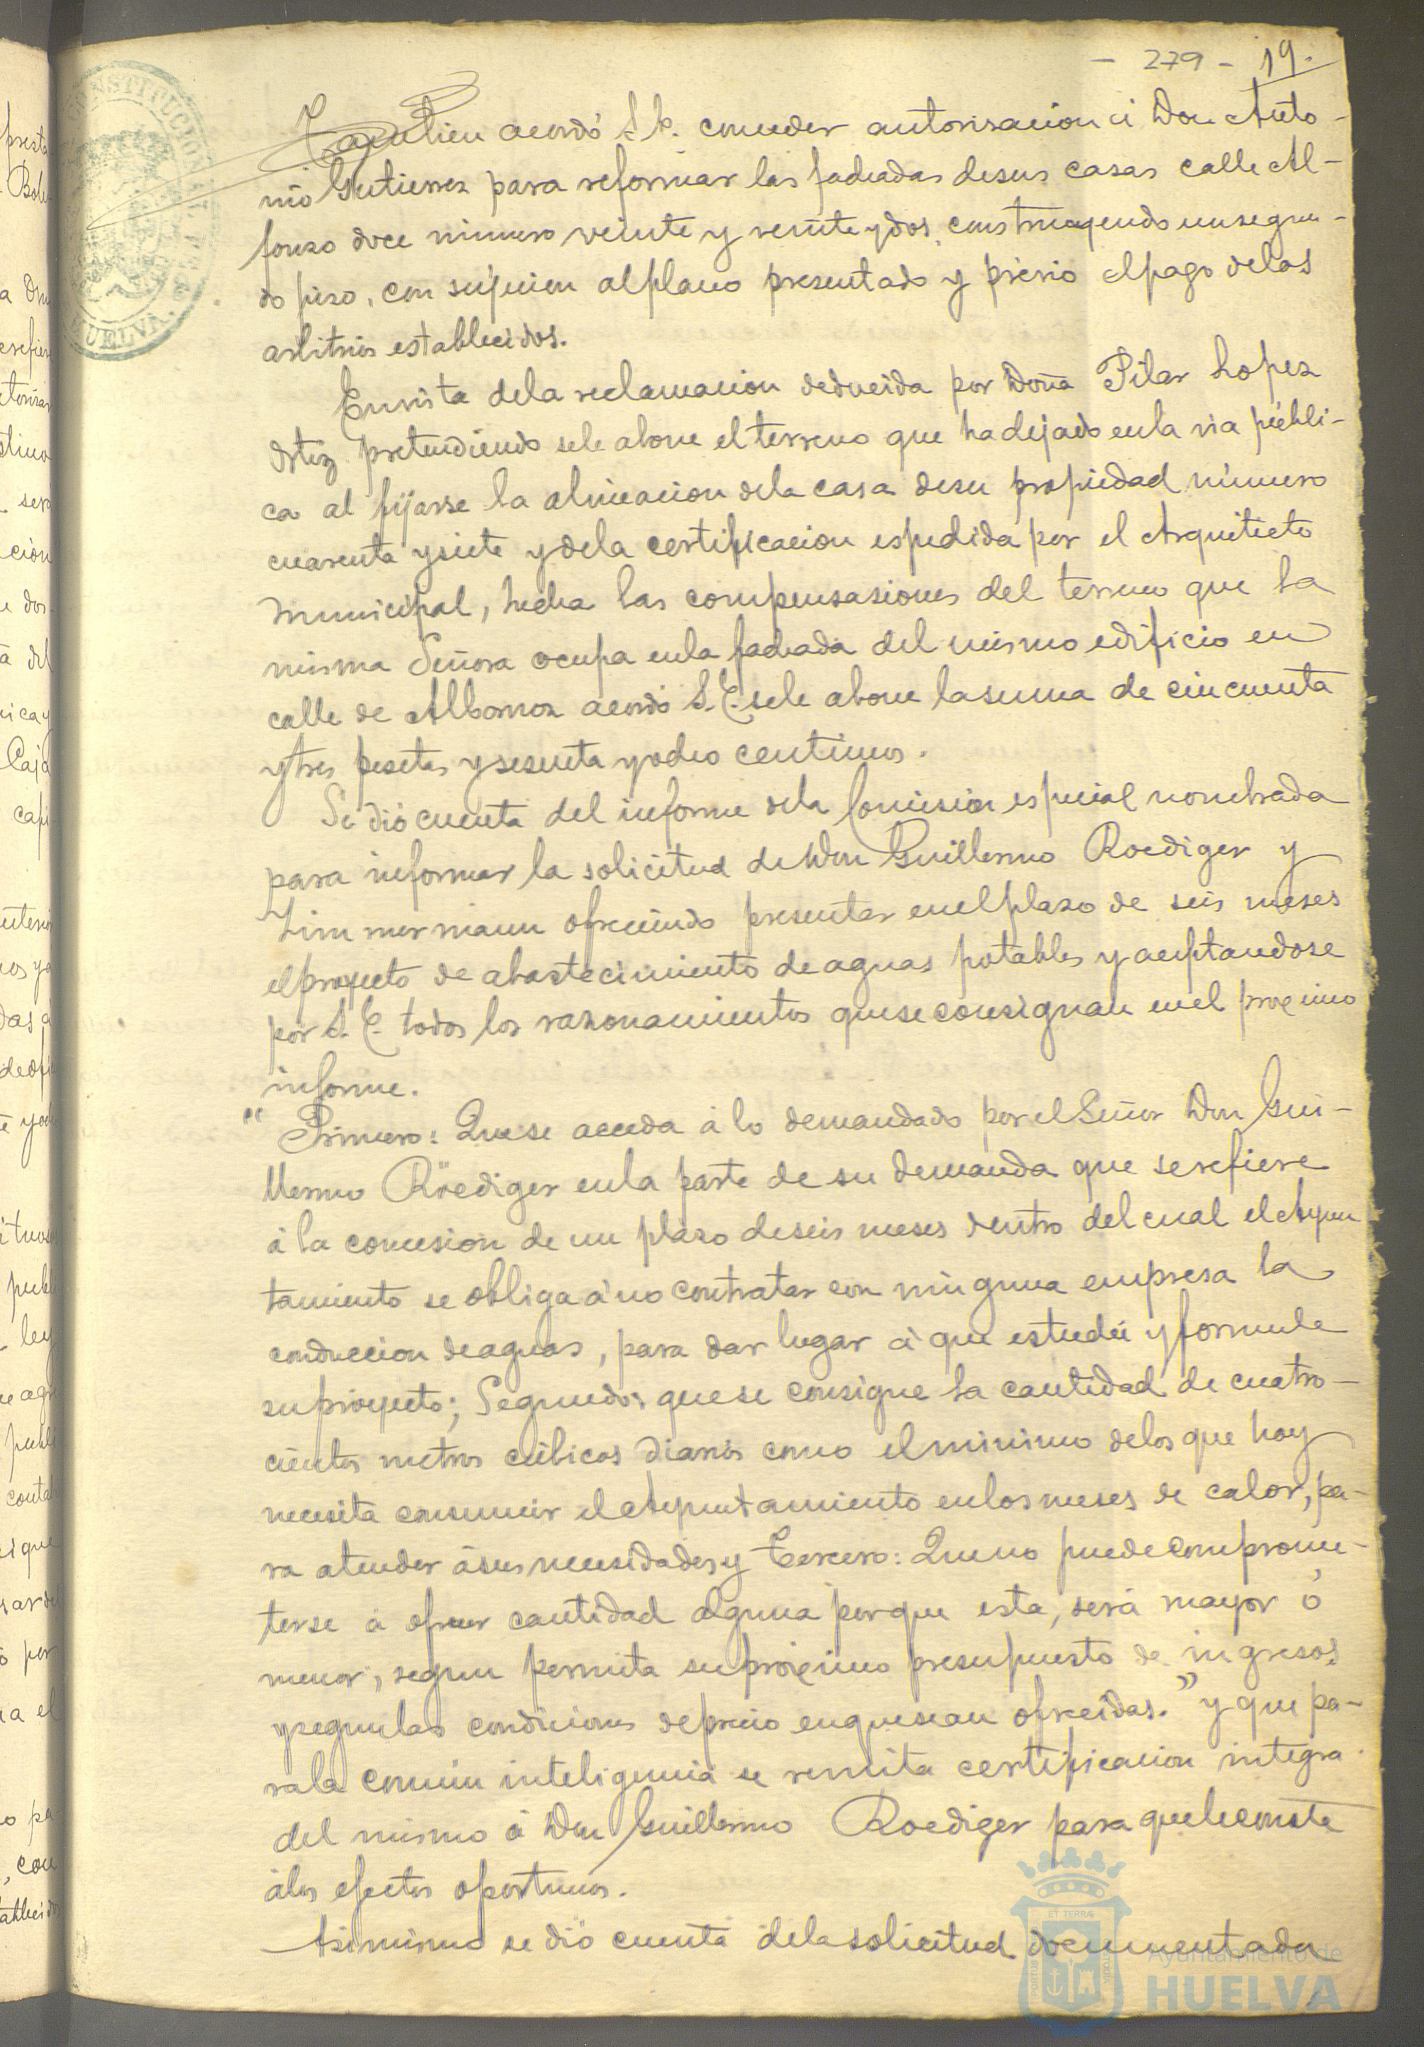 - 279 - 19.
Tambien acordó S. E. conceder autorisacion á Don Anto-
nio Gutierrez para reformar las fachadas desus casas calle Al-
fonso doce número veinte y veinte ydos, construyendo unsegun-
do piso, con sujecion alplano presentado y prévio elpago delos
arbitrios establecidos.
Envista dela reclamacion deducida por Doña Pilar Lopez
Ortiz pretendiendo sele abone elterreno que hadejado enla via públi-
ca al fijarse la alineacion dela casa desu propiedad número
cuarenta ysiete y dela certificacion espedida por el Arquitecto
Municipal, hecha las compensasiones del terreno que la
misma Señora ocupa enla fachada del mismo edificio en
calle de Albornoz acordó S. E. sele abone lasuma de cincuenta
ytres pesetas ysesenta yocho centimos.
Se dió cuenta del informe dela Comision especial nombrada
para informar la solicitud de Don Guillermo Roediger y
Zimmermann ofreciendo presentar enelplazo de seis meses
elproyecto de abastecimiento deaguas potables yaceptandose
por S. E. todos los razonamientos quese consignan enel proximo
informe.
" Primero: Quese acceda á lo demandado por el Señor Don Gui-
llermo Röediger enla parte de su demanda que serefiere
á la concesion de un plazo deseis meses dentro del cual el Ayun
tamiento se obliga á no contratar con ninguna empresa la
conduccion deaguas, para dar lugar á que estudie y formule
suproyecto; Segundo: quese consigne la cantidad de cuatro-
cientos metros cúbicos diarios como el minimo delos que hoy
necesita consumir el Ayuntamiento enlosmeses de calor, pa-
ra atender ásus necesidades y Tercero: Queno puede comprome-
terse á ofrecer cantidad alguna porque esta, será mayor ó
menor, segun permita supróximo presupuesto de ingresos
ysegunlas condiciones deprecio enquesean ofrecidas." y que pa-
rala comun inteligencia se remita certificacion integra
del mismo á Don Guillermo Roediger para queleconste
álos efectos oportunos.
Asimismo se dió cuenta dela solicitud documentada
CONSTITUCIONAL
HUELVA.
Ayuntamiento de
HUELVA